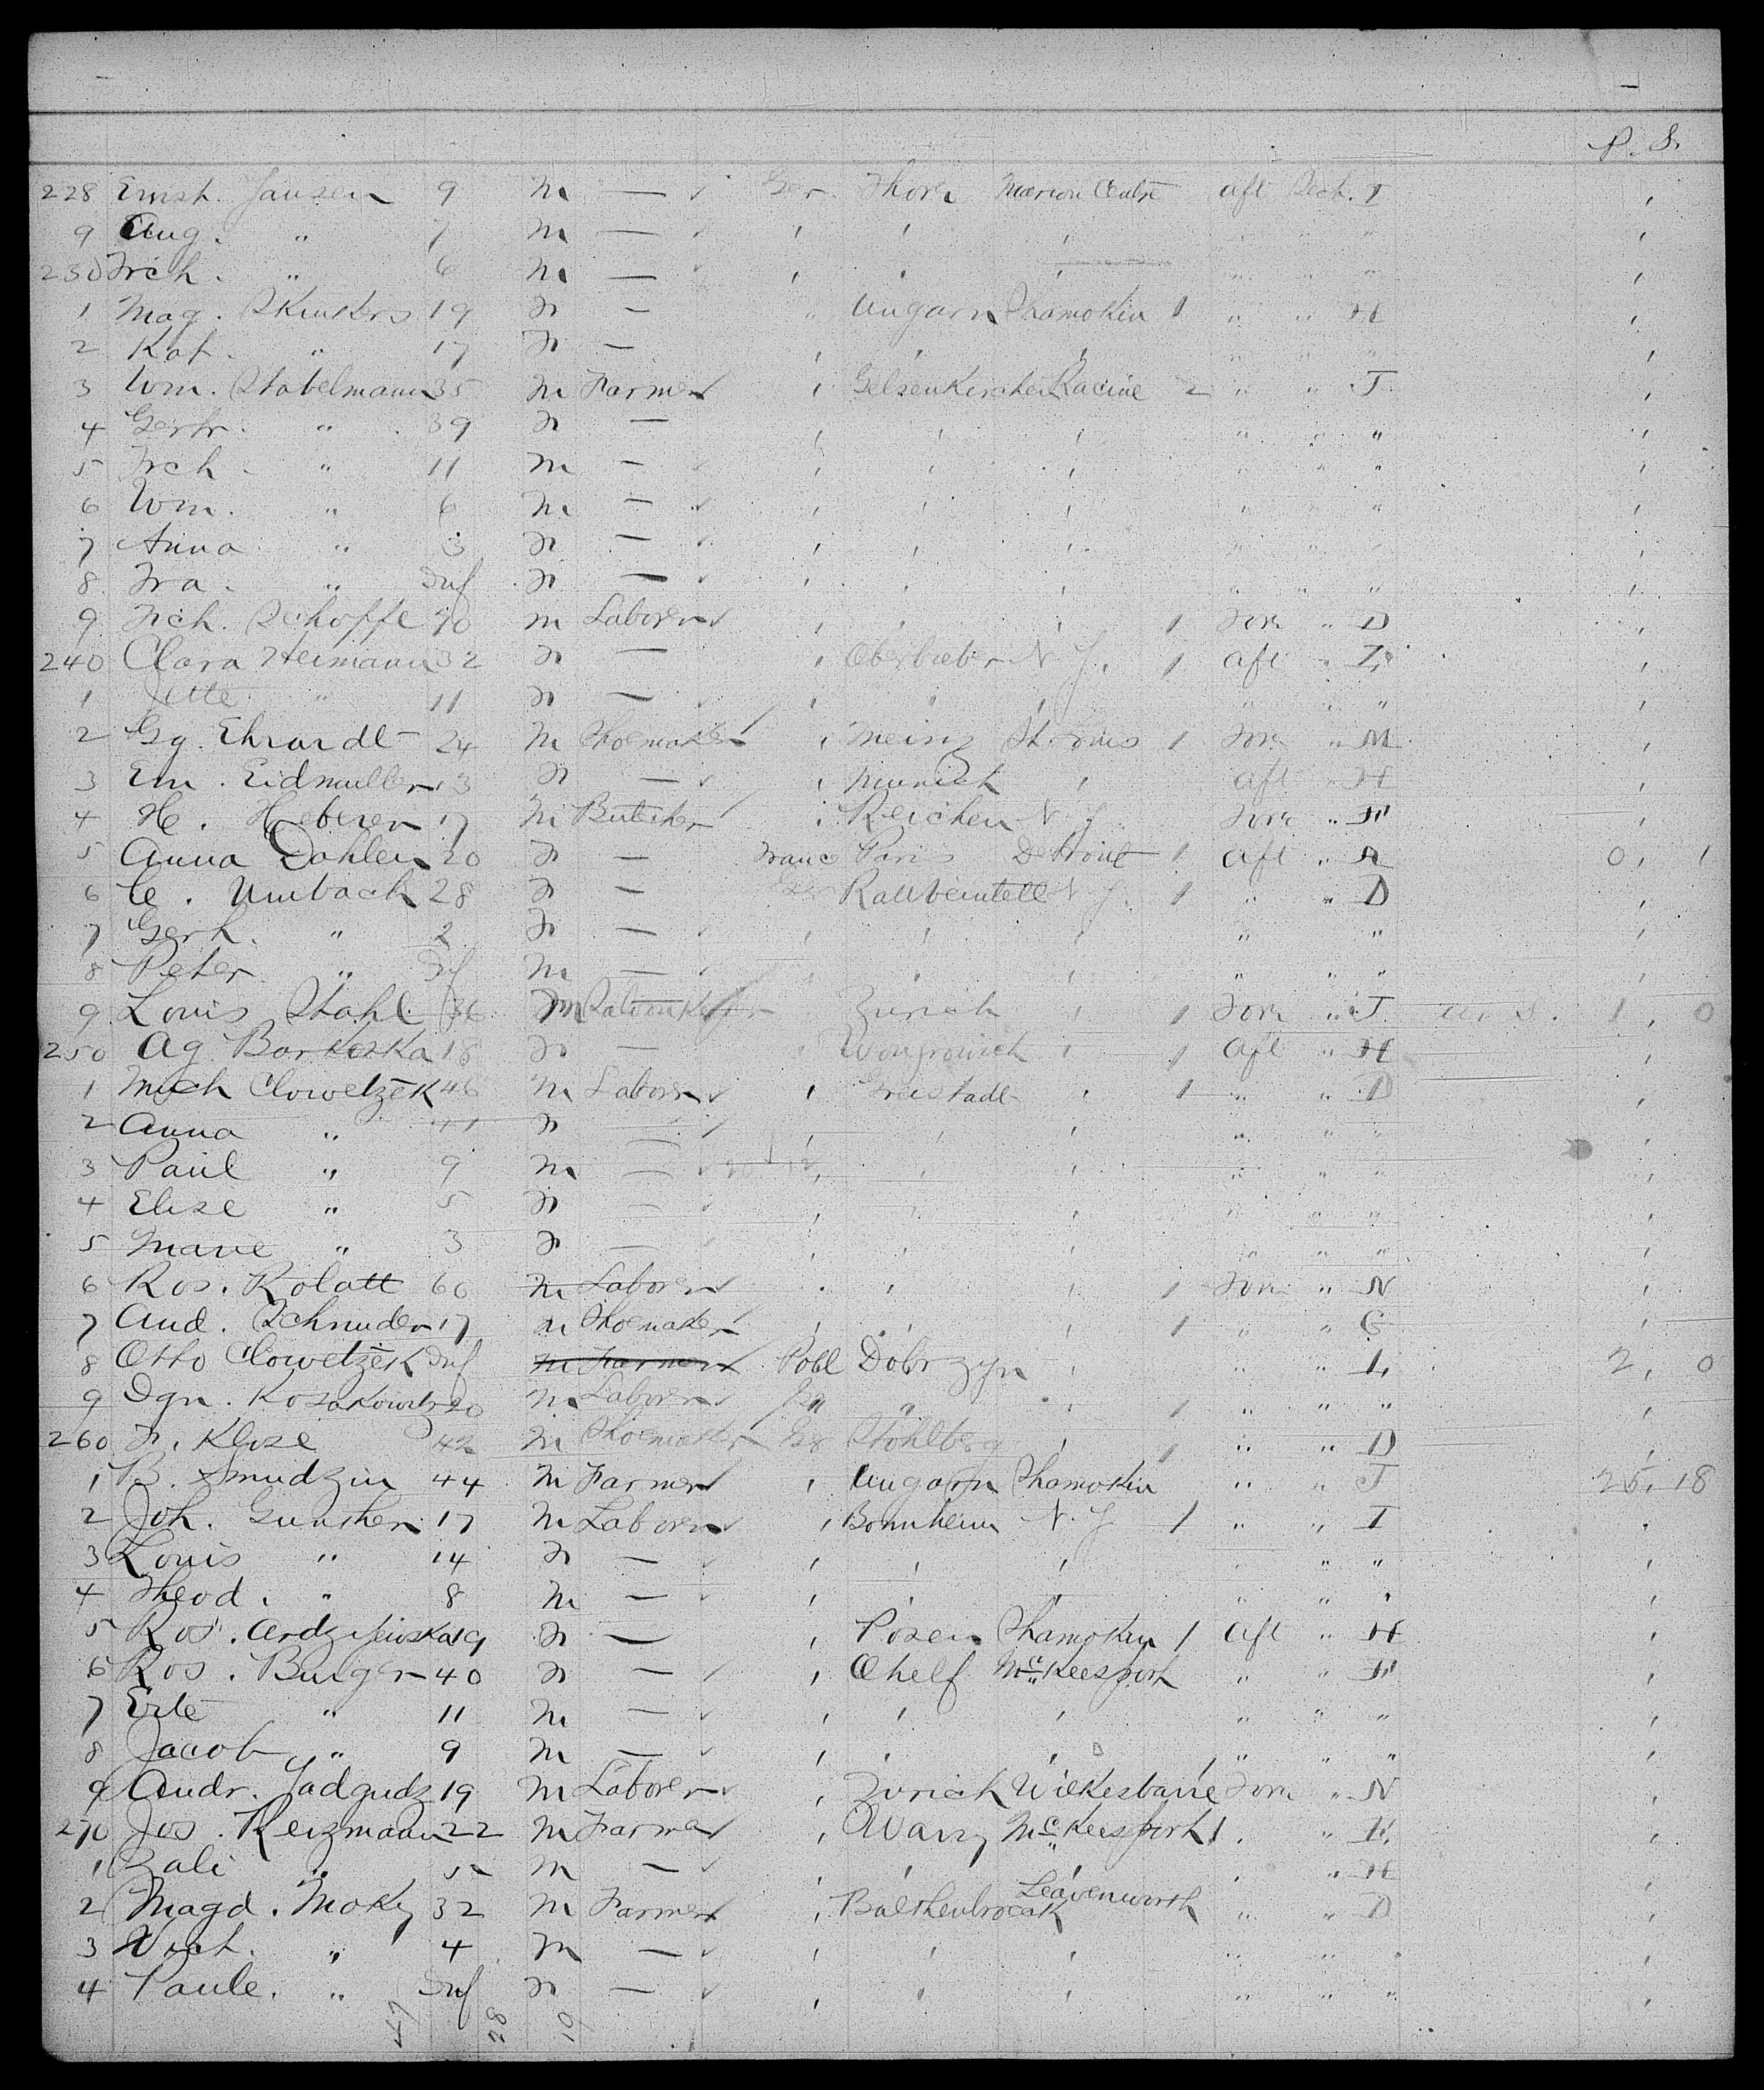 P. S.
228 Ernst. Jansen 9 M — ✓ Ger. Thorn Marion Centre aft Deck. I ,
9 Aug. " 7 M — ✓ , , , " " " ,
230 Frch. " 6 M — ✓ , , , " " " ,
1 Mag. 19 F — " Ungarn Shamokin 1 " " H ,
2 Kat. " 17 F — , , , " " " ,
3 Wm. Stabelmann 35 M Farmer , Gelsenkirchen Racine 2 " " J ,
4 Gertr. " 39 F — , , , " " " ,
5 Frch. " 11 M — ✓ , , , " " " ,
6 Wm. " 6 M — ✓ , , , " " " ,
7 Anna " 3 F — ✓ , , , " " " ,
8 Fra. " Inf F — ✓ , , , " " " ,
9 Frch. Schoffe M Laborer ✓ , , , 1 Fore " D ,
240 Clara Heimann 32 F — , Oberbieber N. Y. 1 aft " L ,
1 Jette " 11 F — ✓ , " , " " " ,
2 Gg. Ehrardt 24 M Shoemaker , Meinz St. Louis 1 Fore " M ,
3 Em. Eidmuller 13 F — ✓ , Munich , aft " H ,
4 He. Heberer 17 M Butcher , Reichen N. Y. Fore " F ,
5 Anna Dahlen 20 F — France Paris Detroit 1 aft " A 0, 1
6 C. Umbach 28 F — Ger N. Y. 1 " " D ,
7 Gerh. " 2 F — ✓ , , , " " ,
8 Peter " Inf M — ✓ , , , " " " ,
9 Louis Stahl 36 M Saloonkeeper Zurich , 1 Fore " J U. S. 1, 0
250 Ag. Borkoska 18 F — , , 1 aft " H
1 Mich Clowetzek 46 M Laborer ✓ , , 1 " " D ,
2 Anna " F — , , , " " " ,
3 Paul " 9 M — ✓ , , , " " " ,
4 Elise " 5 F — ✓ , , , " " " ,
5 Marie " 3 F — , , , " " " ,
6 Ros. Kolatt 60 M Laborer , , , 1 Fore " N ,
7 And. Schnuder 17 M Shoemaker , , , 1 " " G ,
8 Otto Clowetzek Inf M Farmer Pohl Dobrzyn , " " L 2, 0
9 Dgn. 20 M Laborer " , 1 " " " ,
260 F. Klose 42 M Shoemaker Ger Stohlberg , 1 " " D ,
1 B. Smudzin 44 M Farmer , Ungarn Shamokin " " J 25, 18
2 Joh. Gunther 17 M Laborer ✓ , Bonnheim N. Y 1 " " I ,
3 Louis " 14 F — ✓ , , , " " " ,
4 Theod. " 8 M — ✓ , , , " " " ,
5 Ros. 19 F — , Posen Shamokin 1 aft " H ,
6 Ros. Burger 40 F — , Ohelf McKeesport " " F ,
7 " 11 M — ✓ , , , " " " ,
8 Jacob " 9 M — ✓ , , , " " " ,
9 Andr. Jadgudz 19 M Laborer ✓ , Zurich Wilkesbarre Fore " N ,
270 Jos. Reizmann 22 M Farmer , McKeesport 1 " " R ,
1 Zali " 5 M — ✓ , , , " " H ,
2 Magd. Moky 32 M Farmer , Leavenworth " " D ,
3 " 4 M — ✓ , , , " " " ,
4 Paule. " Inf F — ✓ , , , " " " ,
47 28 19